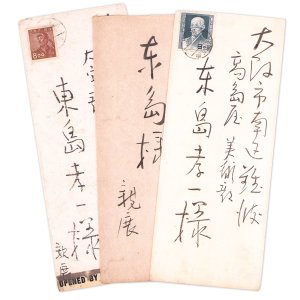 大阪市南区難波
高島屋 美術部
东島孝一様
东島様
親展
東島孝一様
親展
OPENED BY
8.00